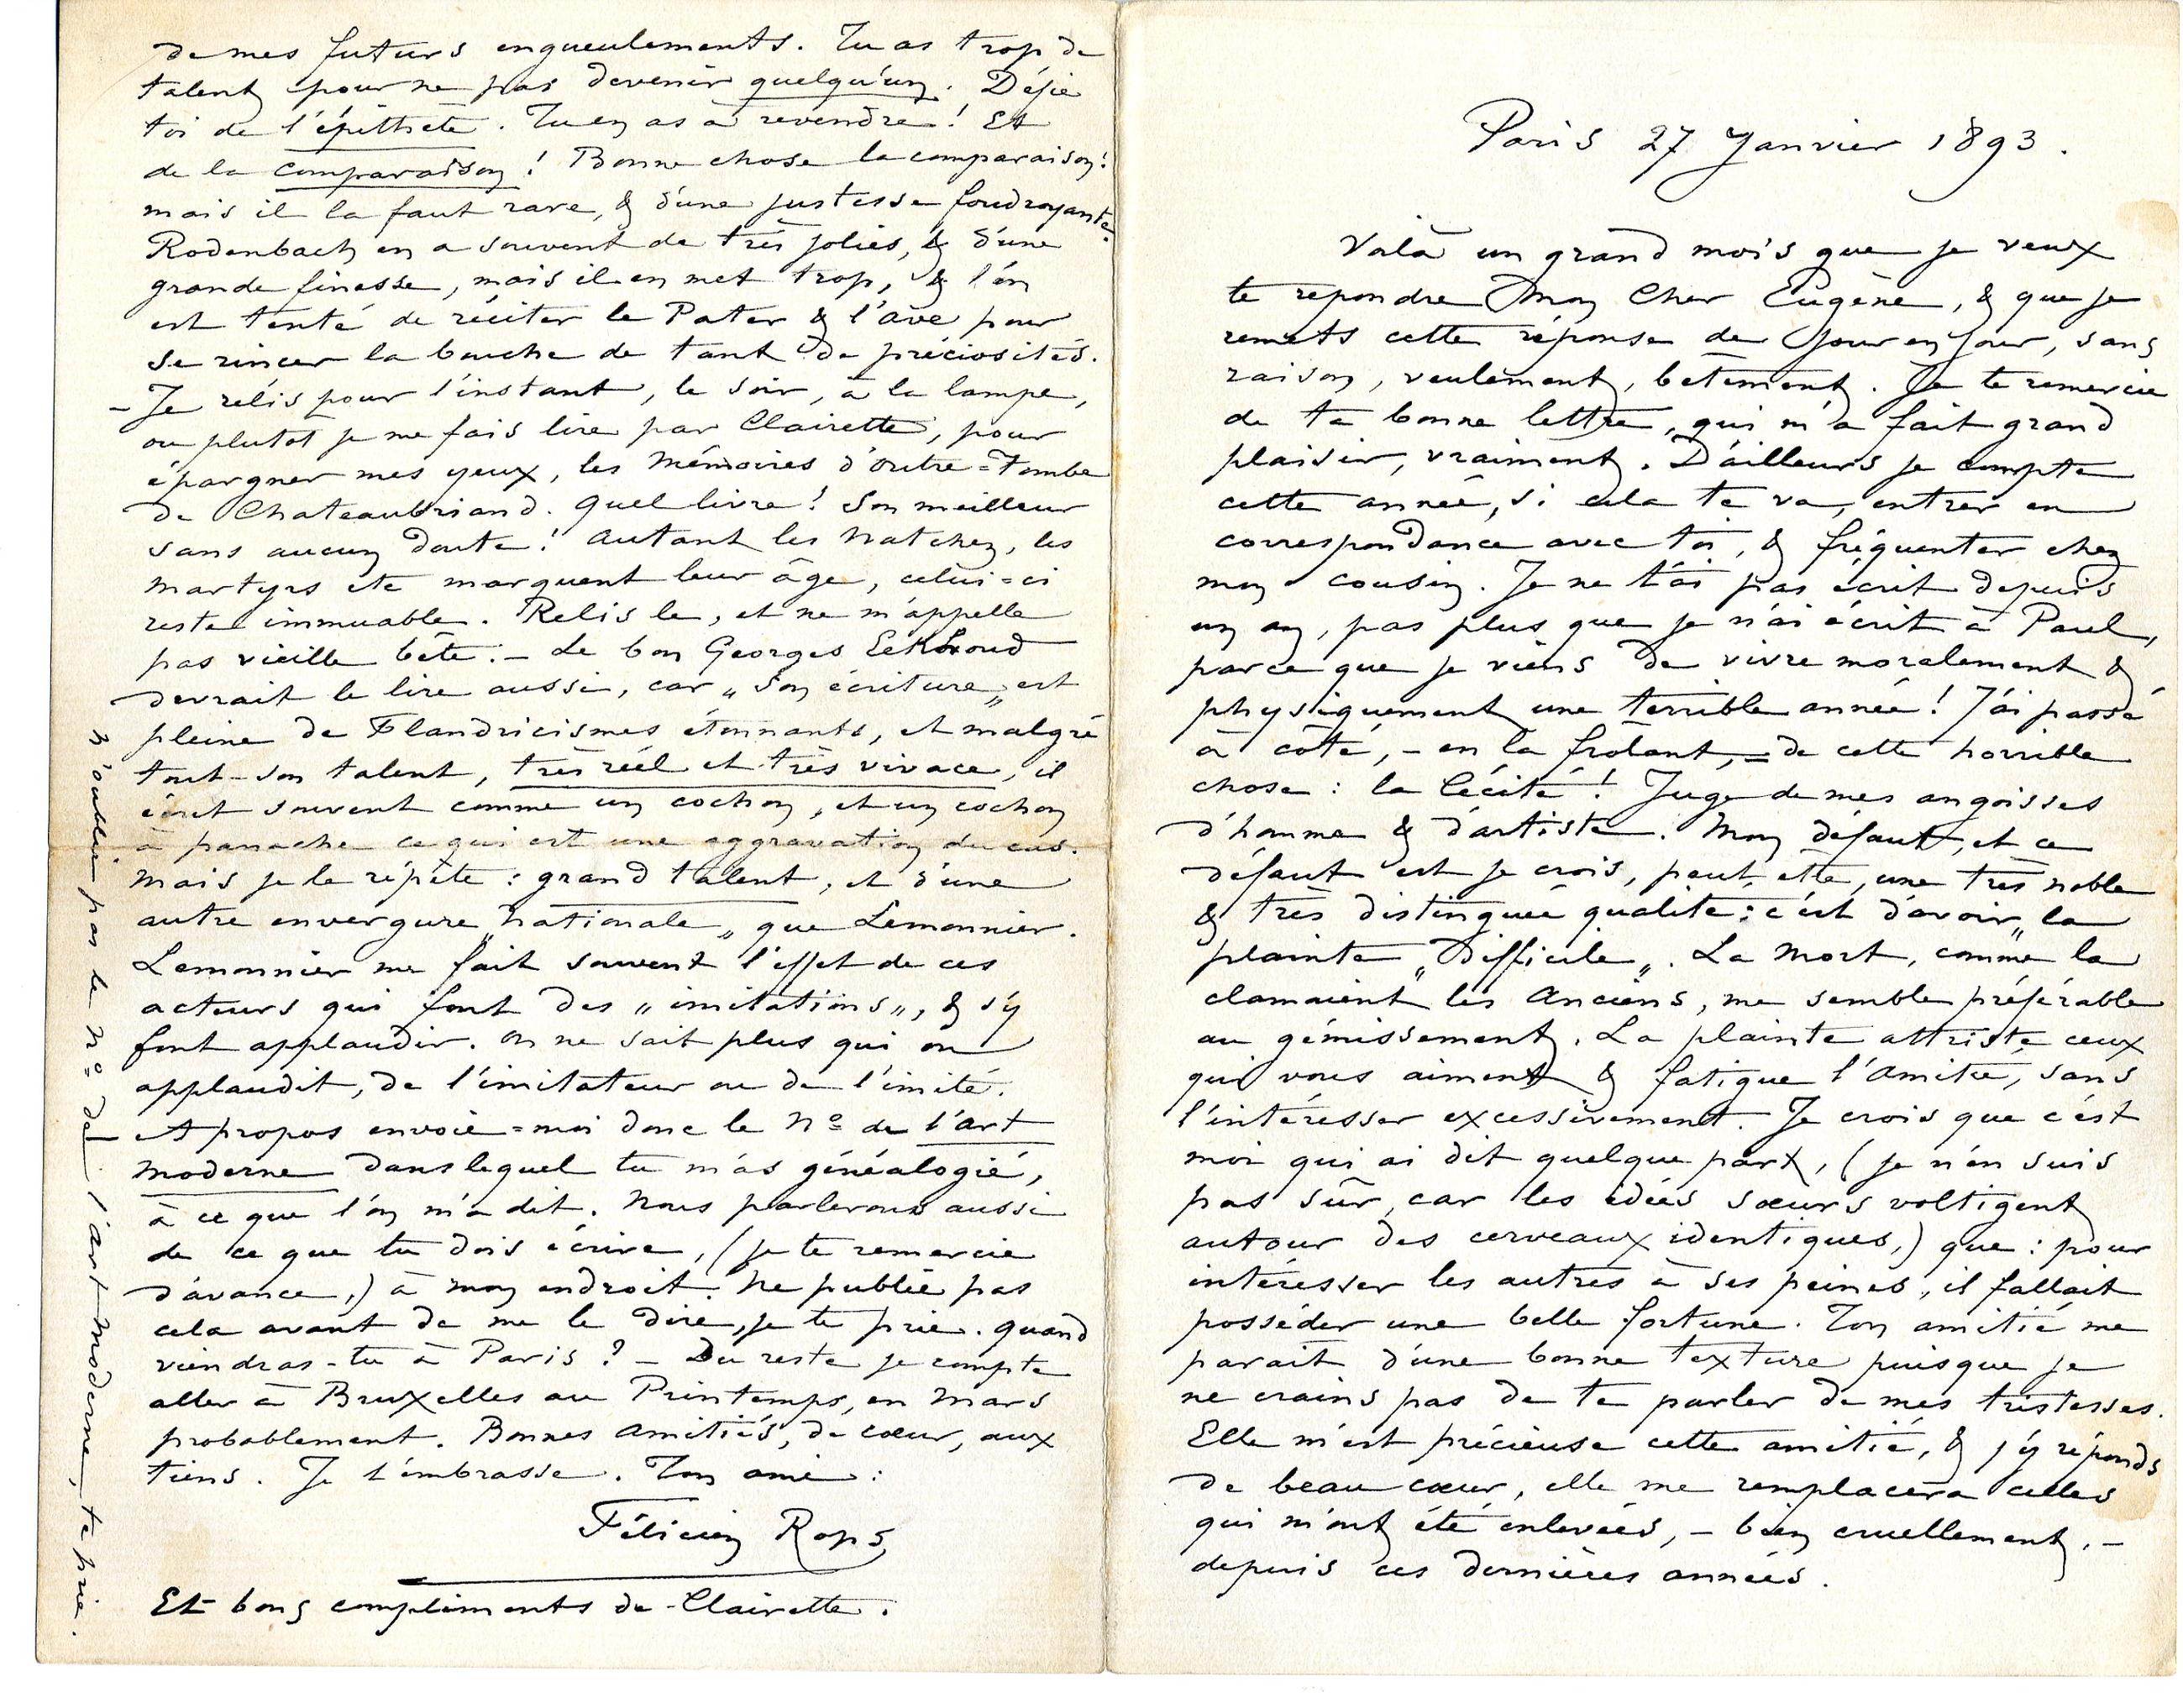 Paris 27 Janvier 1893.
Voilà un grand mois que je veux
te repondre Mon Cher Eugène, & que je
remets cette réponse de jour en jour, sans
raison, veulement, bêtement. Je te remercie
de ta bonne lettre, qui m'a fait grand
plaisir, vraiment. D'ailleurs je compte
cette année, si cela te va, entrer en
correspondance avec toi, & fréquenter chez
mon cousin. Je ne t'ai pas écrit depuis
un an, pas plus que je n'ai écrit à Paul,
parce que je viens de vivre moralement &
physiquement une terrible année! J'ai passé
à côté, – en la frolant, – de cette horrible
chose: la Cécité! Juge de mes angoisses
d'homme & d'artiste. Mon défaut, et ce
défaut est je crois, peut être, une très noble
& très distinguée qualité: c'est d'avoir „la
plainte „Difficile„. La Mort, comme la
clamaient les Anciens, me semble préférable
au gémissement. La plainte attriste ceux
qui vous aiment & fatigue l'Amitié, sans
l'intéresser excessivement. Je crois que c'est
moi qui ai dit quelque part, (je n'en suis
pas sûr, car les idées sœurs voltigent
autour des cerveaux identiques,) que: pour
intéresser les autres à ses peines, il fallait
posséder une belle fortune. Ton amitié me
parait d'une bonne texture puisque je
ne crains pas de te parler de mes tristesses.
Elle m'est précieuse cette amitié, & j'y réponds
de beau cœur, elle me remplacera celles
qui m'ont été enlevées, – bien cruellement, –
depuis ces dernières années.
de mes futurs engueulements. Tu as trop de
talent pour ne pas devenir quelqu'un. Défie
toi de l'épithète. Tu en as à revendre! Et
de la comparaison! Bonne chose la comparaison!
mais il la faut rare, & d'une justesse foudroyante.
Rodenbach en a souvent de très jolies, & d'une
grande finesse, mais il en met trop, & l'on
est tenté de réciter le Pater & l'Ave pour
se rincer la bouche de tant de préciosités.
– Je relis pour l'instant, le soir, à la lampe,
ou plutot je me fais lire par Clairette, pour
épargner mes yeux, les Mémoires d'Outre=Tombe
de Chateaubriand. Quel livre! Son meilleur
sans aucun doute! Autant les Natchez, les
Martyrs etc marquent leur âge, celui=ci
reste immuable. Relis le, et ne m'appelle
pas vieille bête. – Le bon Georges Eekhoud
devrait le lire aussi, car „son écriture„ est
pleine de Flandricismes étonnants, et malgré
tout son talent, très réel et très vivace, il
écrit souvent comme un cochon, et un cochon
à panache ce qui est une aggravation du cas.
Mais je le répète: grand talent, et d'une
autre envergure „nationale„ que Lemonnier.
Lemonnier me fait souvent l'effet de ces
acteurs qui font des „imitations„, & s'y
font applaudir. On ne sait plus qui on
applaudit, de l'imitateur ou de l'imité.
A propos envoie=moi donc le Nº de l'Art
Moderne dans lequel tu m'as généalogié,
à ce que l'on m'a dit. Nous parlerons aussi
de ce que tu dois écrire, (je te remercie
d'avance,) à mon endroit. Ne publie pas
cela avant de me le dire, je te prie. Quand
viendras-tu à Paris? – Du reste je compte
aller à Bruxelles au Printemps, en Mars
probablement. Bonnes amitiés, de cœur, aux
tiens. Je t'embrasse. Ton ami:
Félicien Rops
Et bons compliments de Clairette.
n'oublie pas le Nº de l'Art Moderne, te prie.